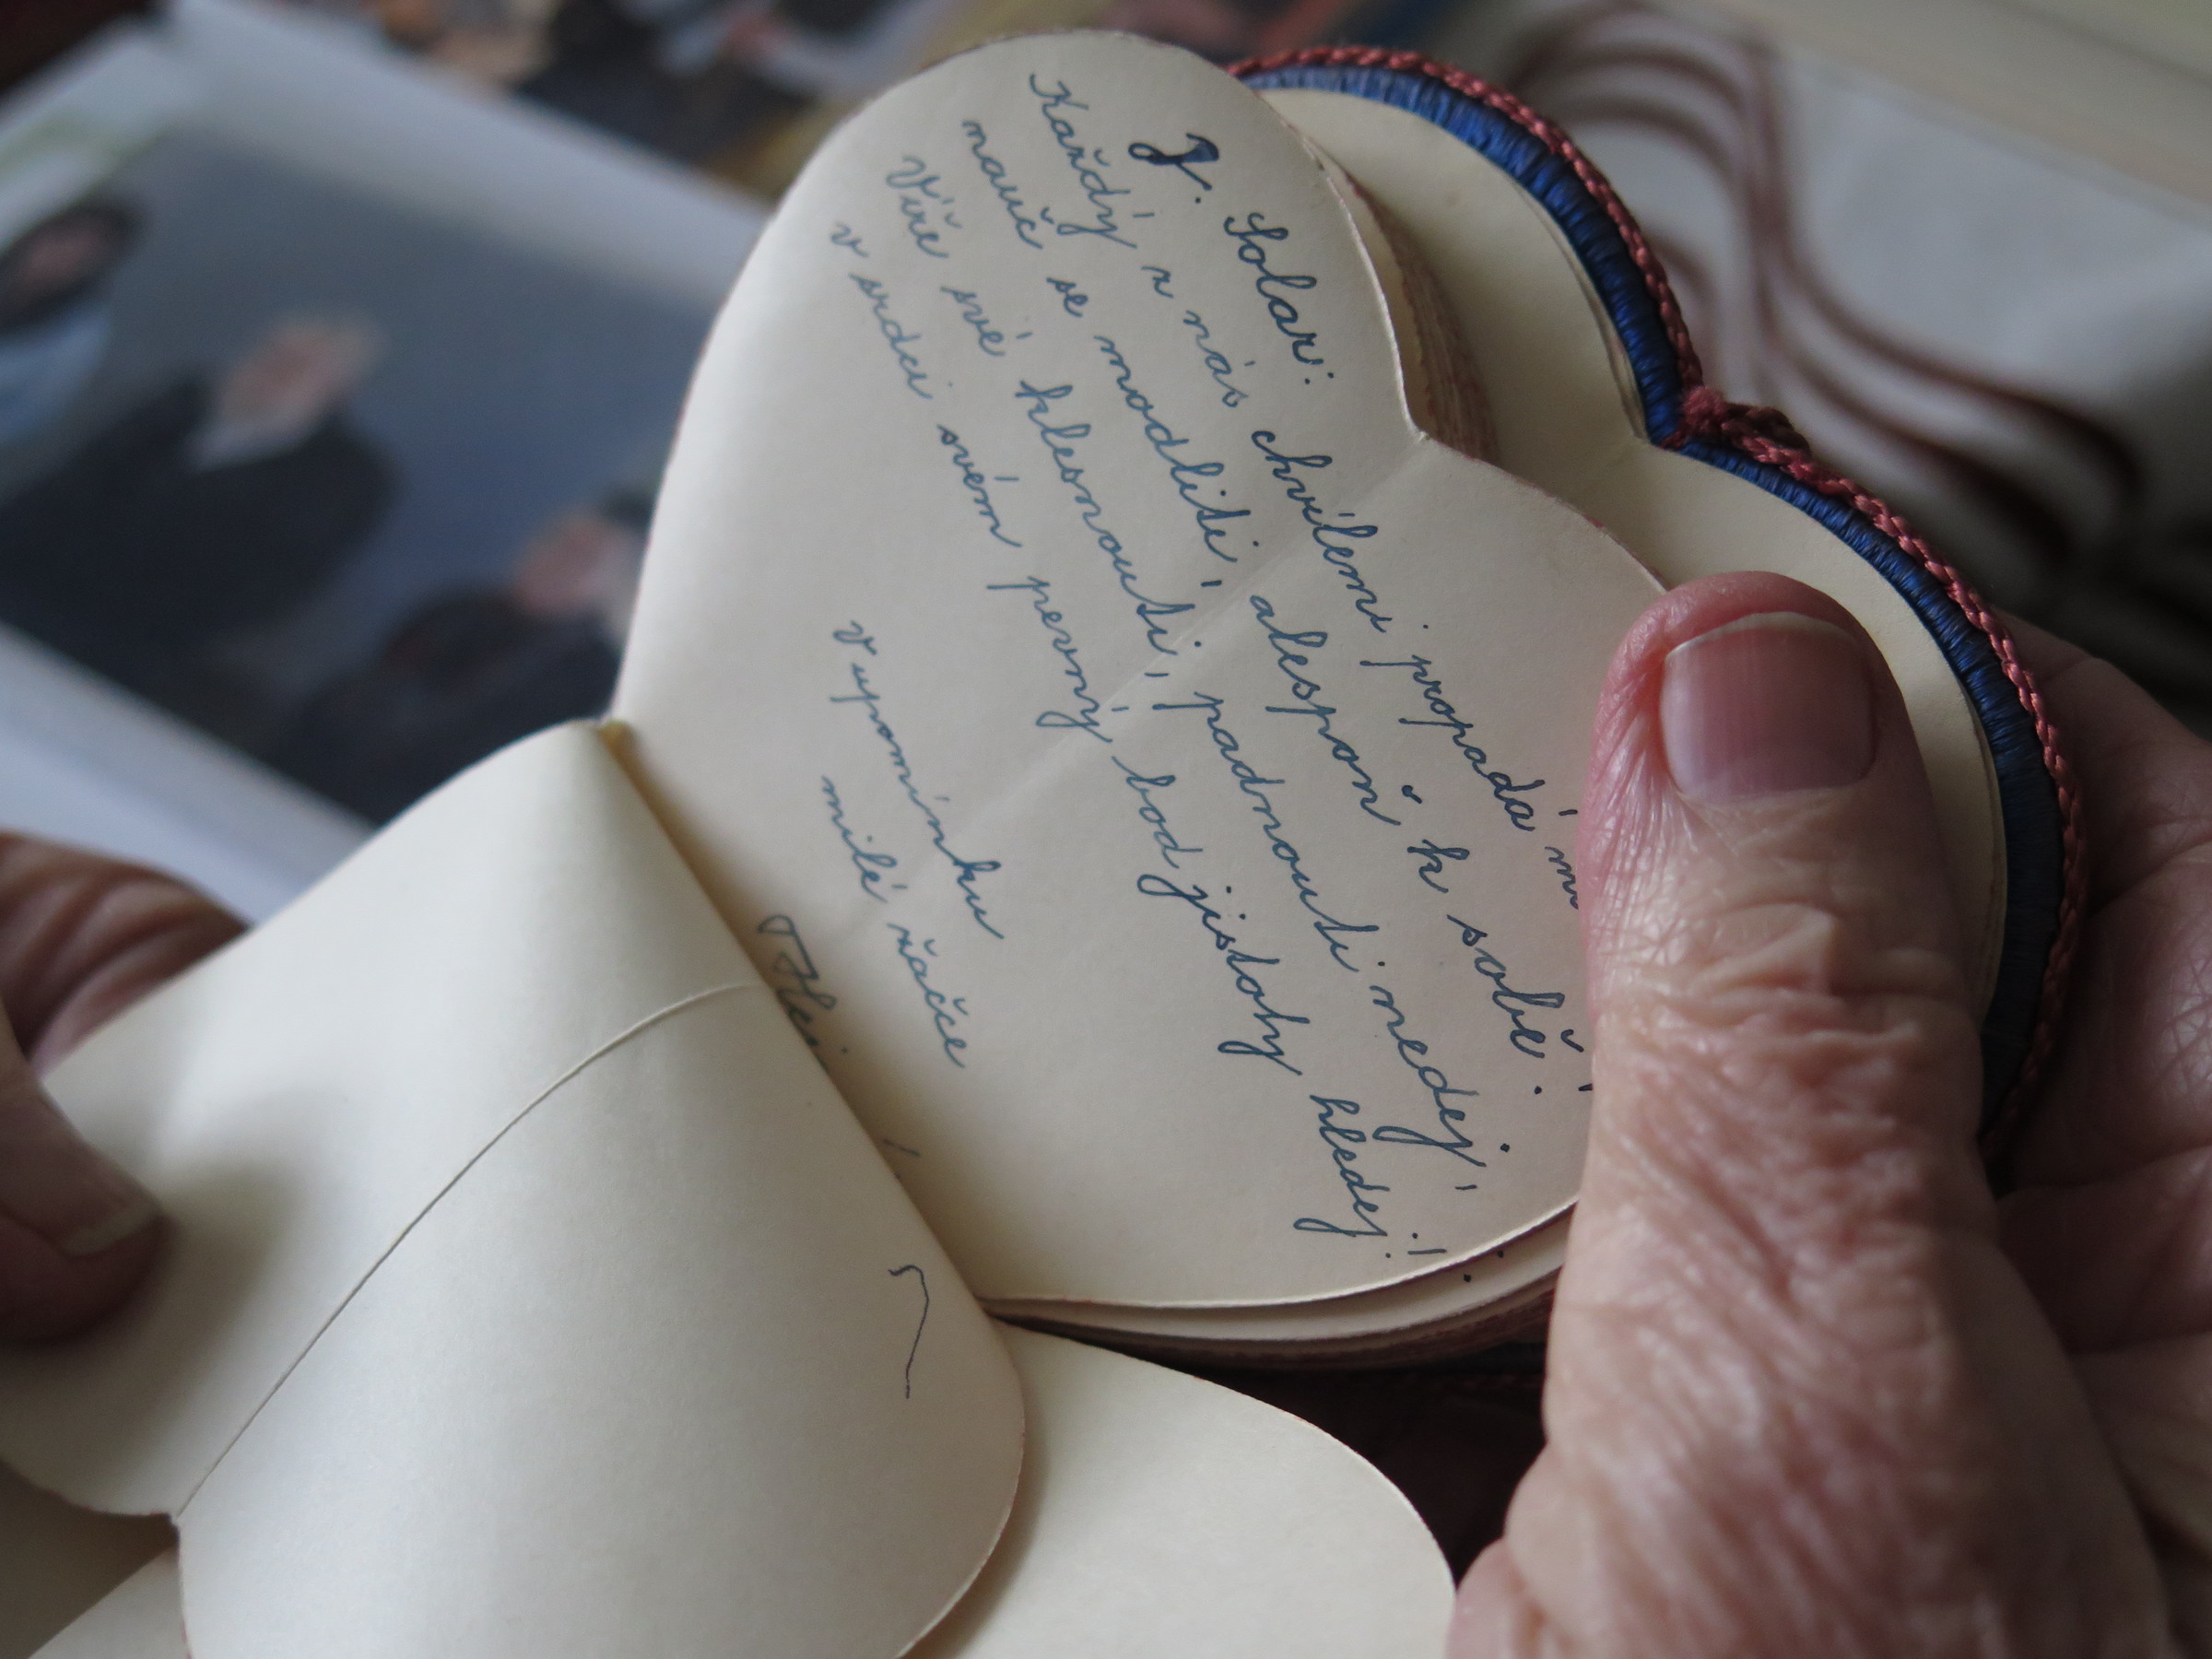 J. Solar:
Každý z nás chvílemi propadá
nauč se modliti, alespoň k sobě!
Víře své klesnouti, padnouti nedej,
v srdci svém pevný bod jistoty hledej!
V upomínku
milé žačce